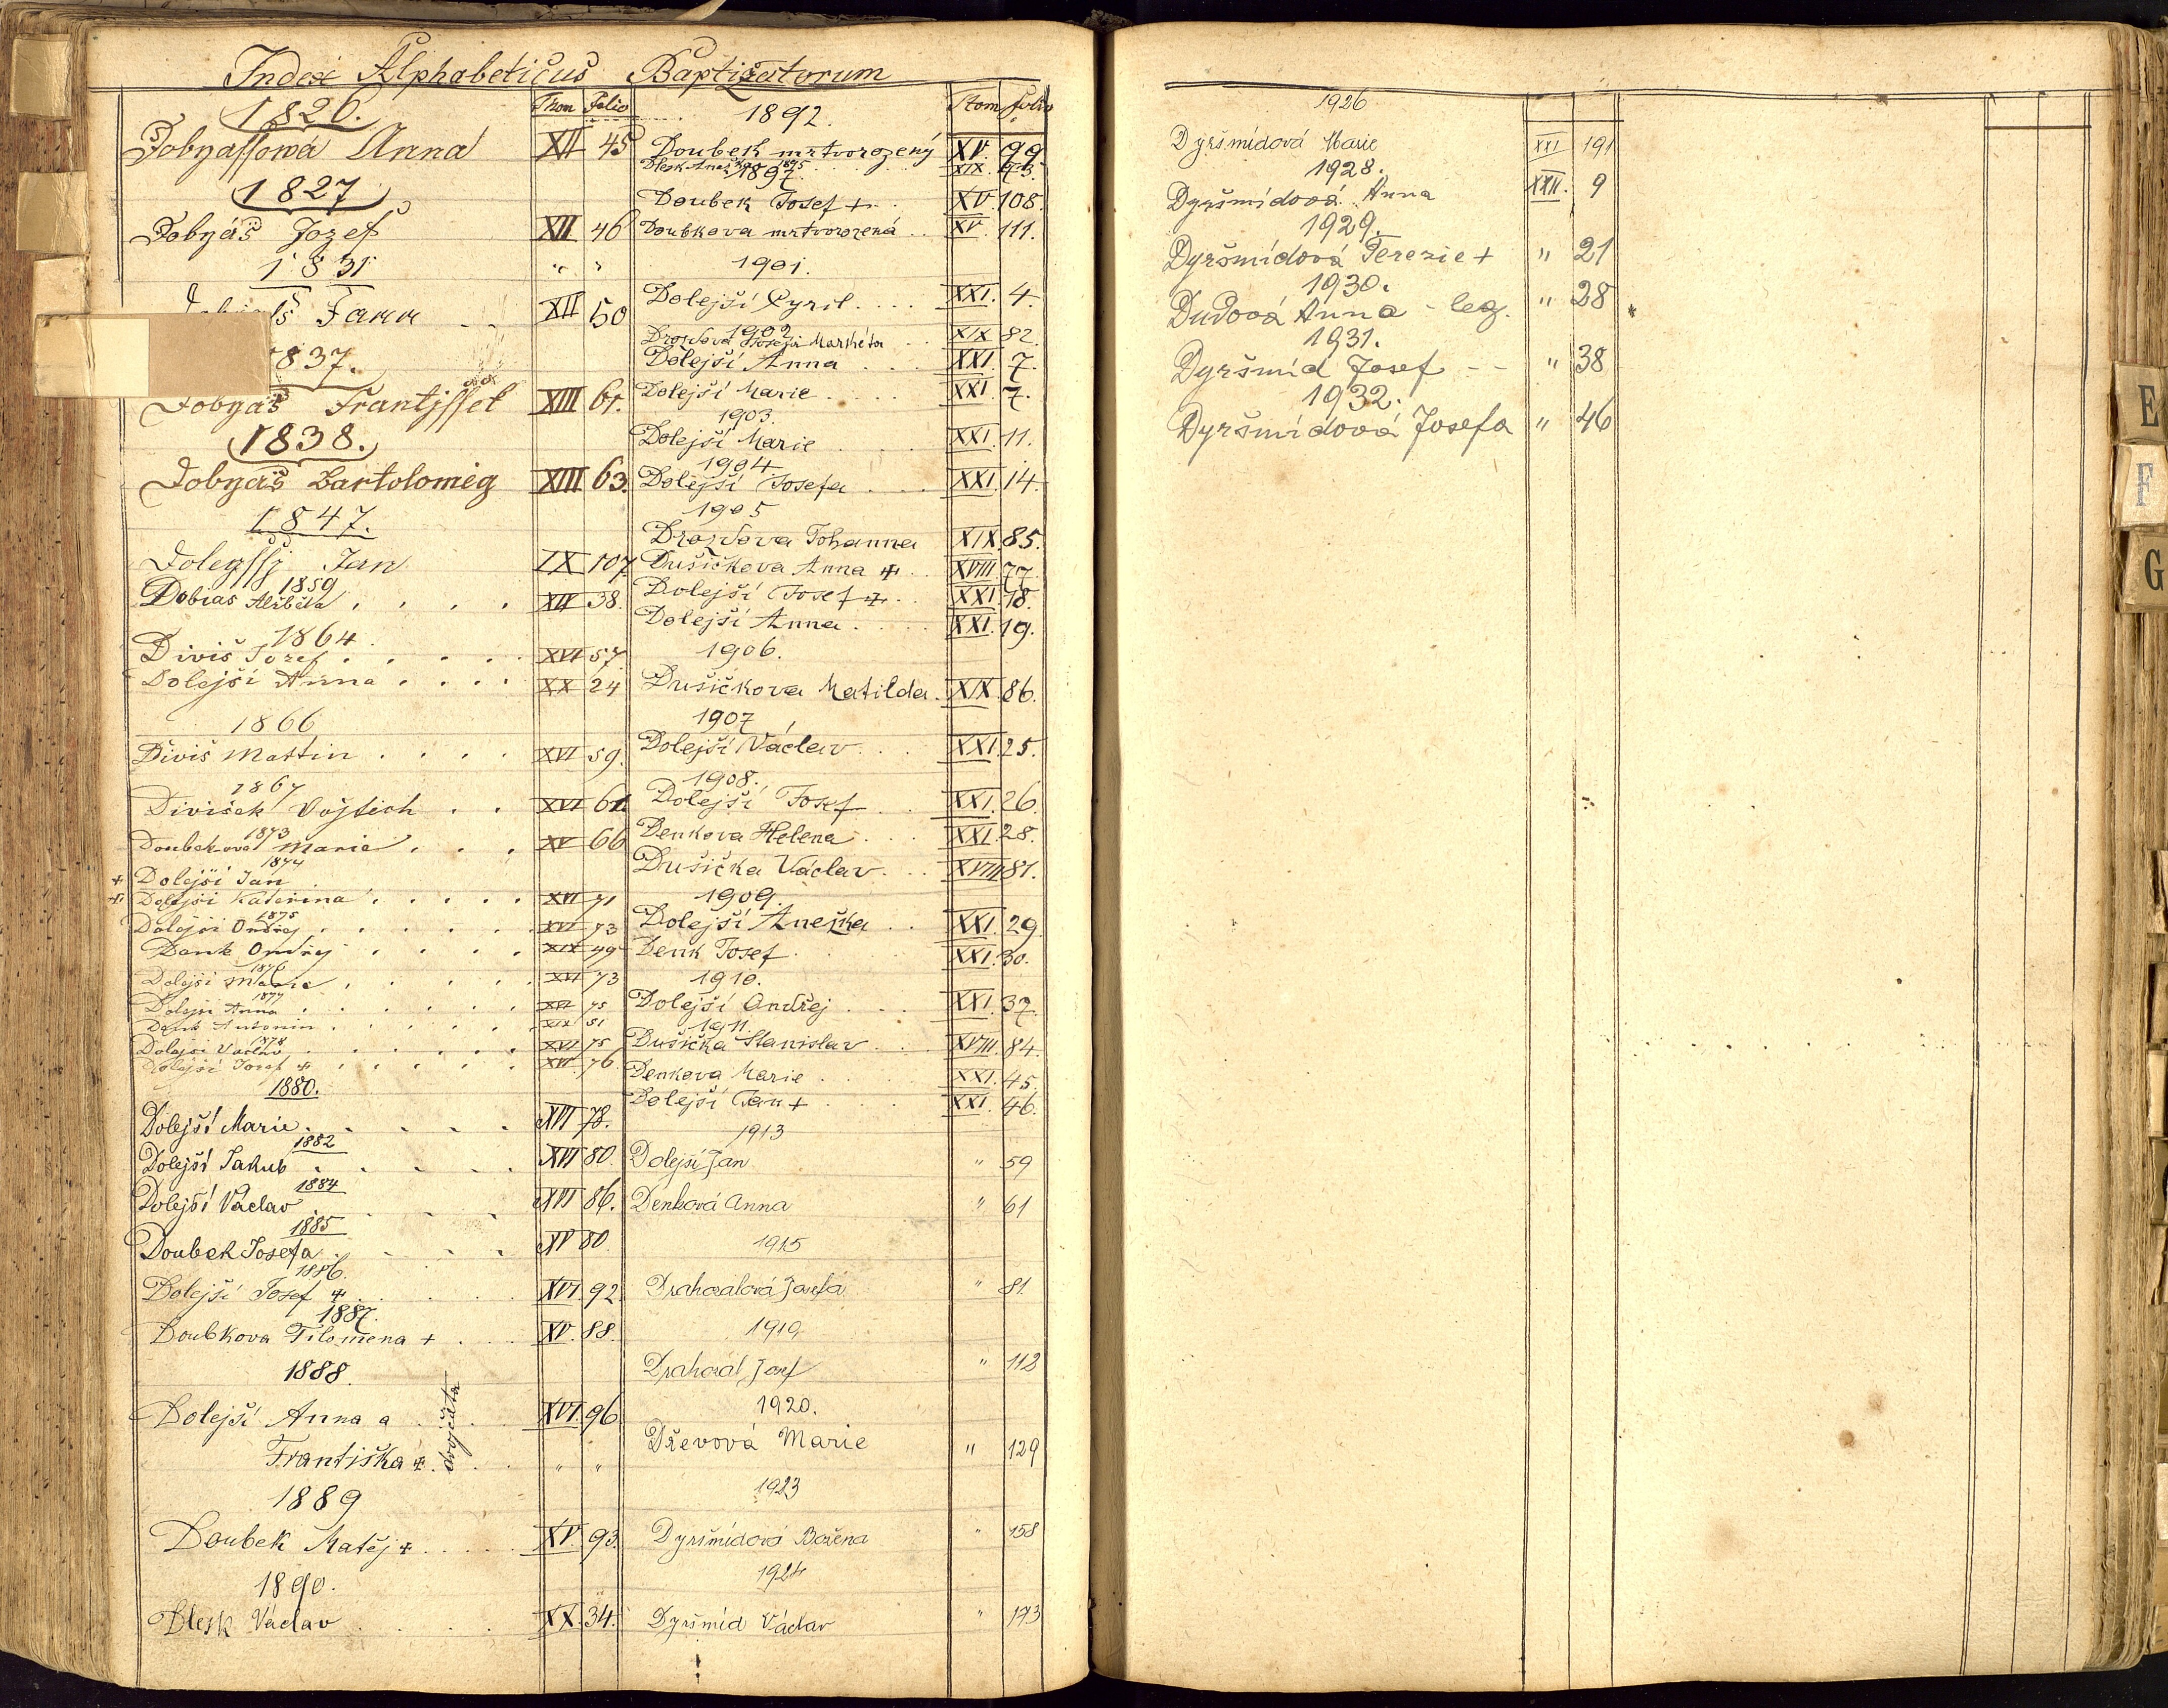 Index Alphabeticus Baptizatorum
Thom Folio
1820.
Dobyassowá Anna XII 45
1827
Dobyáš Jozef XII 46
1831 " "
XII 50
837.
Dobyáš Frantjssek XIII 61.
1838.
Dobyáš Bartolomig XIII 63.
1847.
Dolegssj Jan IX 107
1859
Dobias Alžběta . . . . XII 38.
1864
Diviš Jozef . . . . . XVI 57
Dolejší Anna . . . . XX 24
1866
Diviš Martin . . . . XVI 59.
1867
Divišek Vojtěch . . XVI 61.
1873
Doubek-ová Marie . . . XV 66
1874
+ Dolejší Jan
+ Dolejší Kateřina . . . . . XVI 71
1875
Dolejší Ondřej . . . . . . XVI 73
Denk Ondřej . . . . XIX 49
1876
Dolejší Marie . . . . . XVI 73
1877
Dolejší Anna . . . . . . XVI 75
Denk Antonin . . . . . . XIX 51
1878
Dolejší Václav . . . . . . XVI 75
Dolejší Josef + . . . . . XVI 76.
1880.
Dolejší Marie . . . . . XVI 78.
1882
Dolejší Jakub . . . . . XVI 80.
1884
Dolejší Václav . . . XVI 86.
1885
Doubek Josefa . . . . XV 80.
1886.
Dolejší Josef + . . . . XVI. 92.
1887.
Doubkova Filomena + . . . XV. 88.
1888.
Dolejší Anna a . . . . XVI. 96.
Františka + . dvojčata . . " "
1889
Doubek Matěj + . . . . . XV. 93.
1890.
Dlesk Václav . . . . . XX. 34.
Tom folio
1892.
Doubek mrtvorozený XV. 99.
1895
XIX.
1897.
Doubek Josef + . . XV. 108.
Doubkova mrtvorozená . . XV. 111.
1901.
Dolejší Cyril . . . . XXI. 4.
1902
Drozdova Markéta . . XIX 82.
Dolejší Anna . . . XXI. 7.
Dolejší Marie . . . . XXI. 7.
1903.
Dolejší Marie . . . XXI. 11.
1904.
Dolejší Josefa . . . XXI. 14.
1905
Drozdova Johanna XIX. 85.
Dušičkova Anna + . . XVIII. 77.
Dolejší Josef + . . XXI. 18.
Dolejší Anna . . . . XXI. 19.
1906.
Dušičkova Matilda . XIX. 86.
1907
Dolejší Václav . . . XXI. 25.
1908.
Dolejší Josef . . . XXI. 26.
Denkova Helena . . . XXI. 28.
Dušička Václav . . . XVIII. 81.
1909.
Dolejší Anežka . . XXI. 29.
Denk Josef . . . . XXI. 30.
1910.
Dolejší Ondřej . . . . XXI. 37.
1911.
Dušička Stanislav . . . XVIII. 84.
Denkova Marie . . . . . XXI. 45.
Dolejší Jan + . . . . XXI. 46.
1913
Dolejší Jan " 59
Denková Anna " 61
1915
Drahozalová Josefa " 81.
1919
Drahozal Josef " 112
1920.
Dževová Marie " 129
1923
Dyršmídová Božena " 158
1924
Dyršmíd Václav " 173
1926
Dyršmídová Marie XXI 191
1928.
Dyršmídová Anna XXII. 9
1929.
Dyršmídová Terezie + " 21
1930.
Dudová Anna - leg. " 28
1931.
Dyršmíd Josef - - " 38
1932.
Dyršmídová Josefa " 46
E
F
G